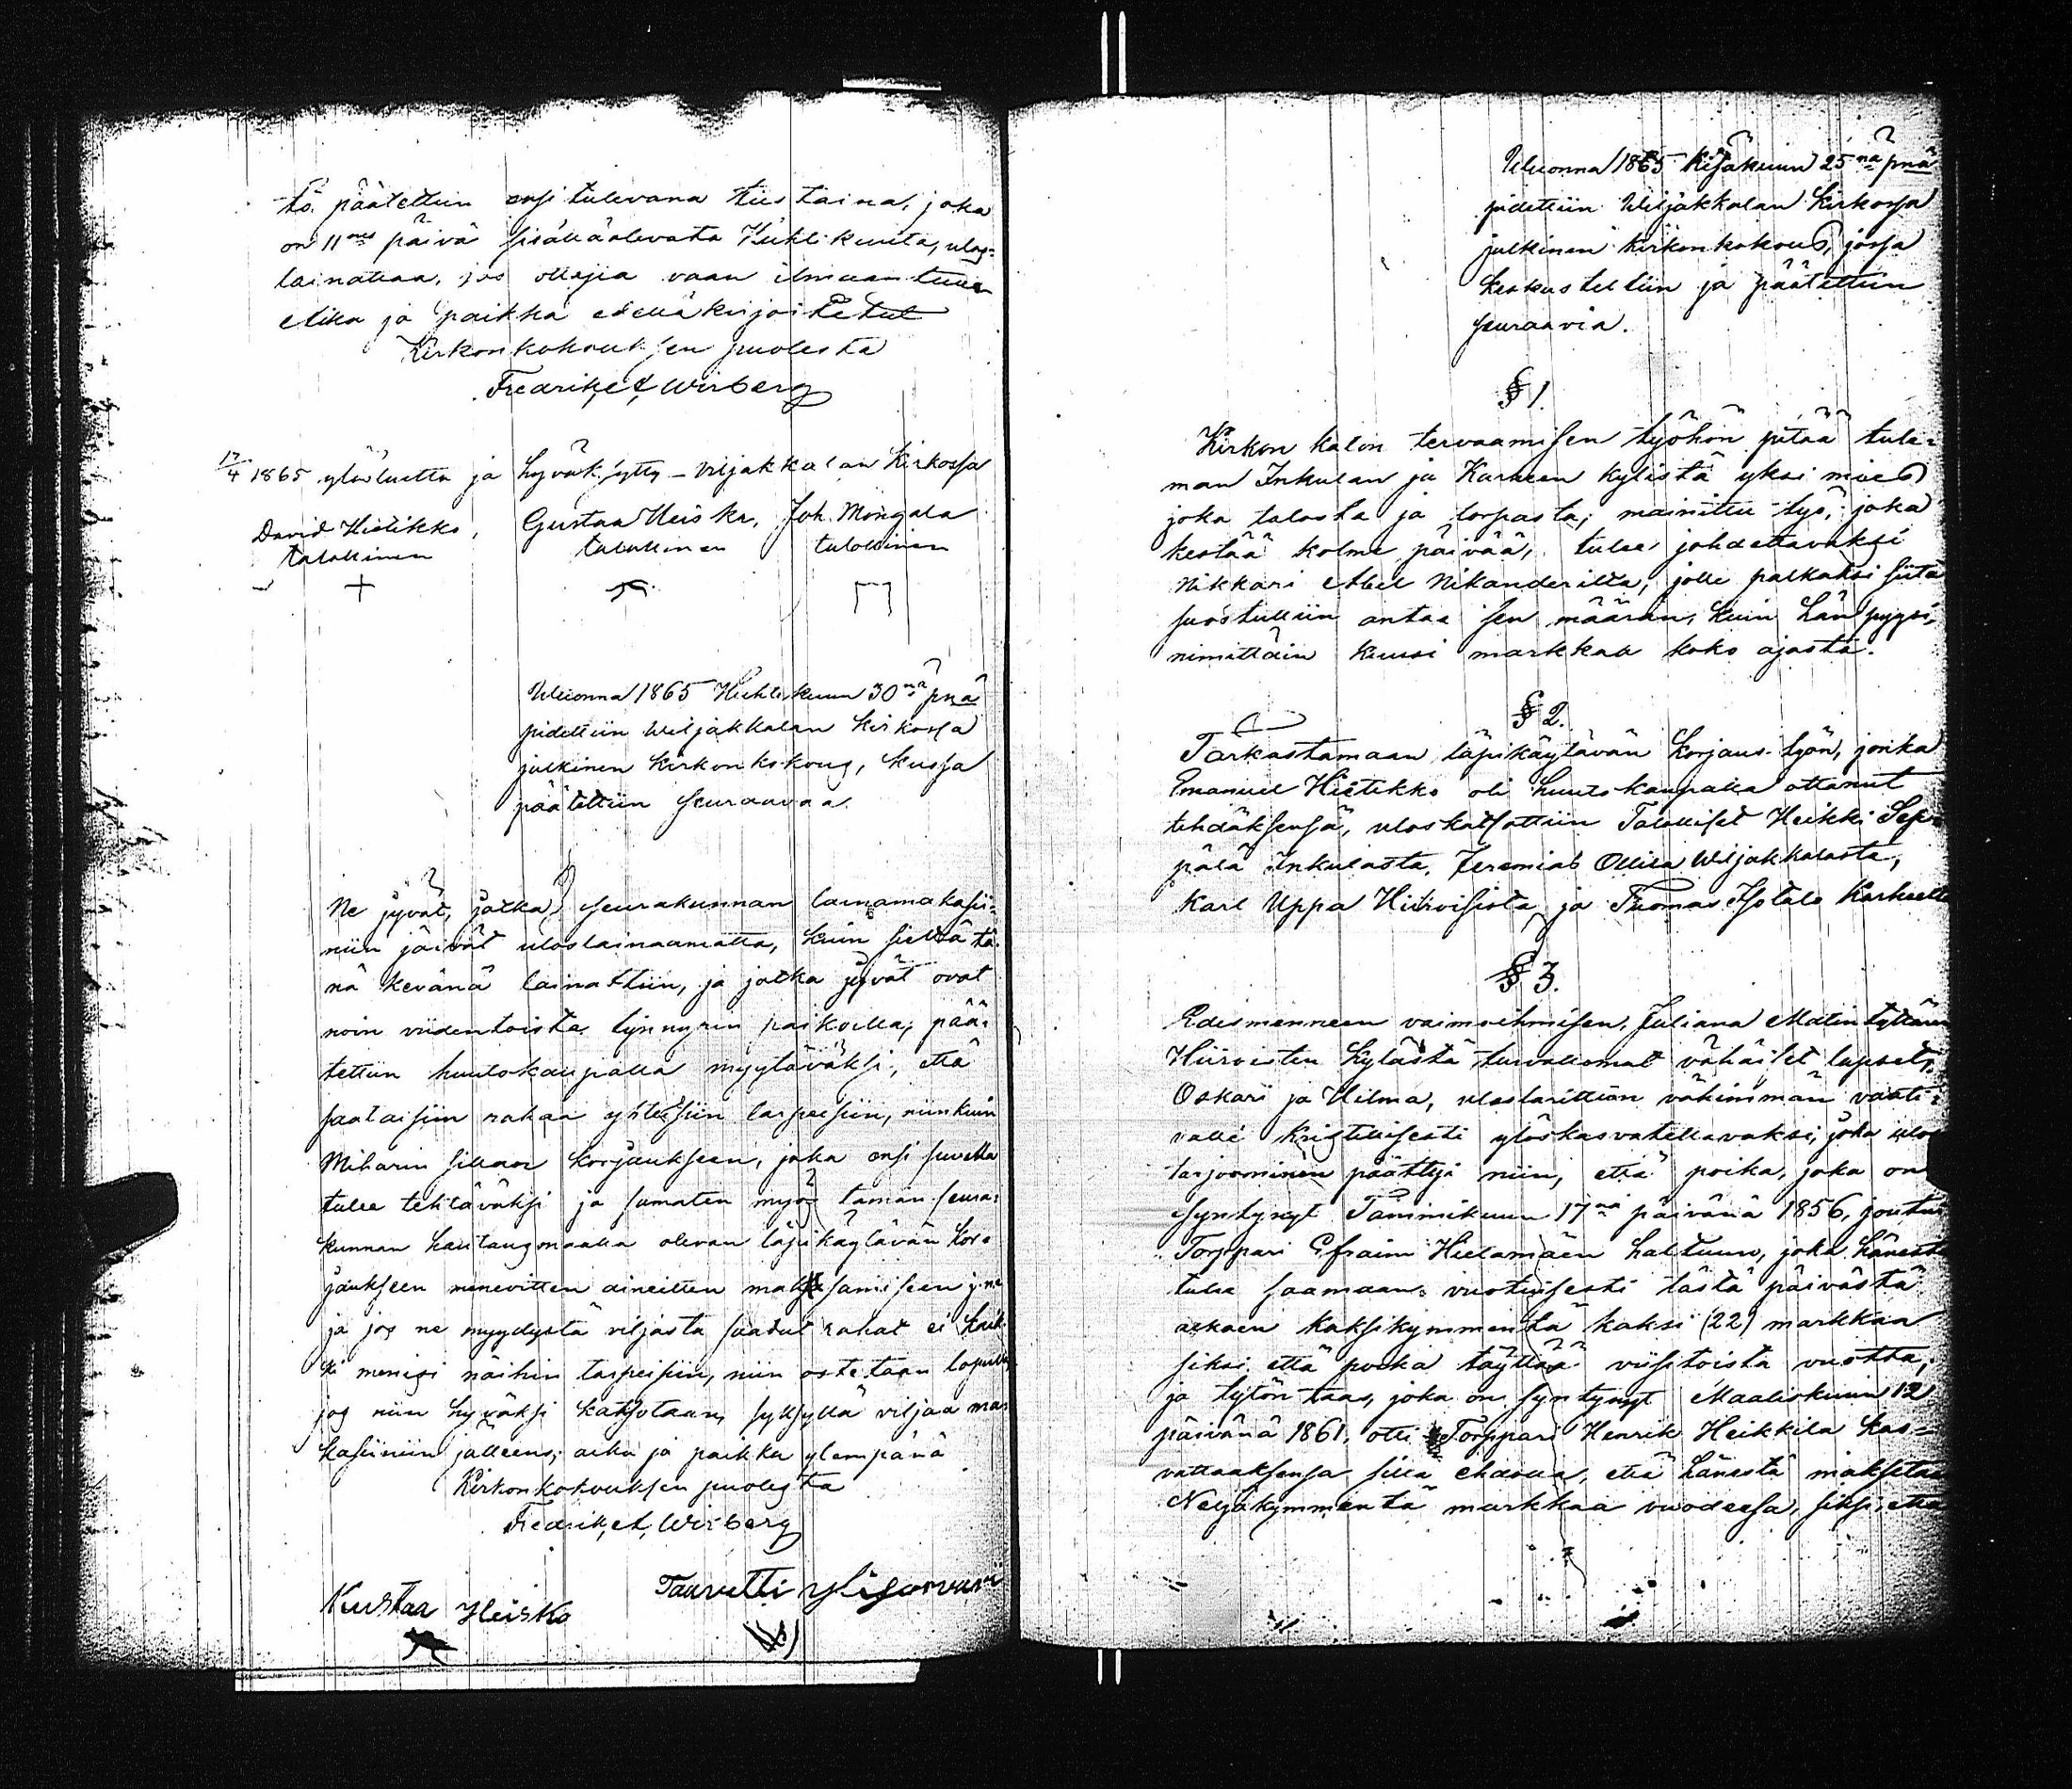 tö. päätettiin ensitulevana tiistaina, joka
on 11nes päivä sisälläolevata Huhtikuuta, ulos=
lainattaa, jos ottajia vaan ilmaantuu
aika ja paikka edelläkirjoitetut
Kirkonkokouksen puolesta
Fredrik, A, Wirberg
17/4 1865 ylösluettu ja hyväksytty - Viljakkalan Kirkossa
David Hietikko, Gustaa Heiska, Joh. Mongala
talollinen talollinen talollinen
Wuonna 1865 Huhtikuun 30nä pnä
pidettiin Wiljakkalan kirkossa
julkinen kirkonkokous, kussa
päätettiin seuraavaa.
Ne jyvät, jotka seurakunnan lainamakasii=
niin jäivät uloslainaamatta, kuin sieltä tä=
nä kevänä lainattiin, ja jotka jyvät ovat
noin viidentoista tynnyrin paikoilla, pää=
tettiin huutokaupalla myytäväksi, että
saataisiin rahaa yhteisiin tarpeisiin, niinkuin
Miharin sillan korjaukseen, joka ensi suvella
tulee tehtäväksi ja samaten myös tämän seura=
kunnan hautausmaalla olevan läpikäytävän kor=
jaukseen menevitten aineitten maksamiseen j.n.e
ja jos ne myydystä viljasta saadut rahat ei kaik
ki menisi näihin tarpeisiin, niin ostetaan lopuilla
jos niin hyväksi katsotaan, syksyllä viljaa ma=
kasiiniin jälleens; aika ja paikka ylempänä
Kirkonkokouksen puolesta
Fredrik, A, Wirberg
Kustaa Heisko Taavetti
Wuonna 1865 Kesäkuun 25nä pnä
pidettiin Wiljakkalan Kirkossa
julkinen kirkonkokous, jossa
keskusteltiin ja päätettiin
seuraavia.
§ 1.
Kirkon katon tervaamisen työhön pitää tule=
man Inkulan ja Karheen kylistä yksi mies
joka talosta ja torpasta; mainittu työ, joka
kestää kolme päivää, tulee johdettavaksi
Nikkari Abel Nikanderilta, jolle palkaksi siitä
suostuttiin antaa sen määrän, kuin hän pyysi,
nimittäin kuusi markkaa koko ajasta.
§ 2.
Tarkastamaan läpikäytävän korjaus-työn, jonka
Emanuel Hietikko oli huutokaupalla ottanut
tehdäksensä, uloskatsottiin Talolliset Heikki Sep=
pälä Inkulasta, Jeremias Ollila Wiljakkalasta,
Karl Uppa Hiirvisistä, ja Thomas Isotalo Karheelta
§ 3.
Edesmenneen vaimoihmisen, Juliana Matintyttären
Hiirvisten kylästä turvattomat vähäiset lapset,
Oskari ja Hilma, ulostarittiin vähimmän vaati=
valle kristillisesti ylöskasvatettavaksi, joka ulos
tarjoominen päättyi niin, että poika, joka on
syntynyt Tammikuun 17nä päivänä 1856, joutui
Torppari Efraim Hietamäen haltuun, joka hänestä
tulee saamaan vuotuisesti tästä päivästä
alkaen kaksikymmentä kaksi (22) markkaa
siksi että poika täyttää viisitoista vuotta,
ja tytön taas, joka on syntynyt Maaliskuun 12
päivänä 1861, otti Torppari Henrik Heikkilä kas=
vattaaksensa sillä ehdolla, että hänestä maksetaan
Neljäkymmentä markkaa vuodessa, siksi, että